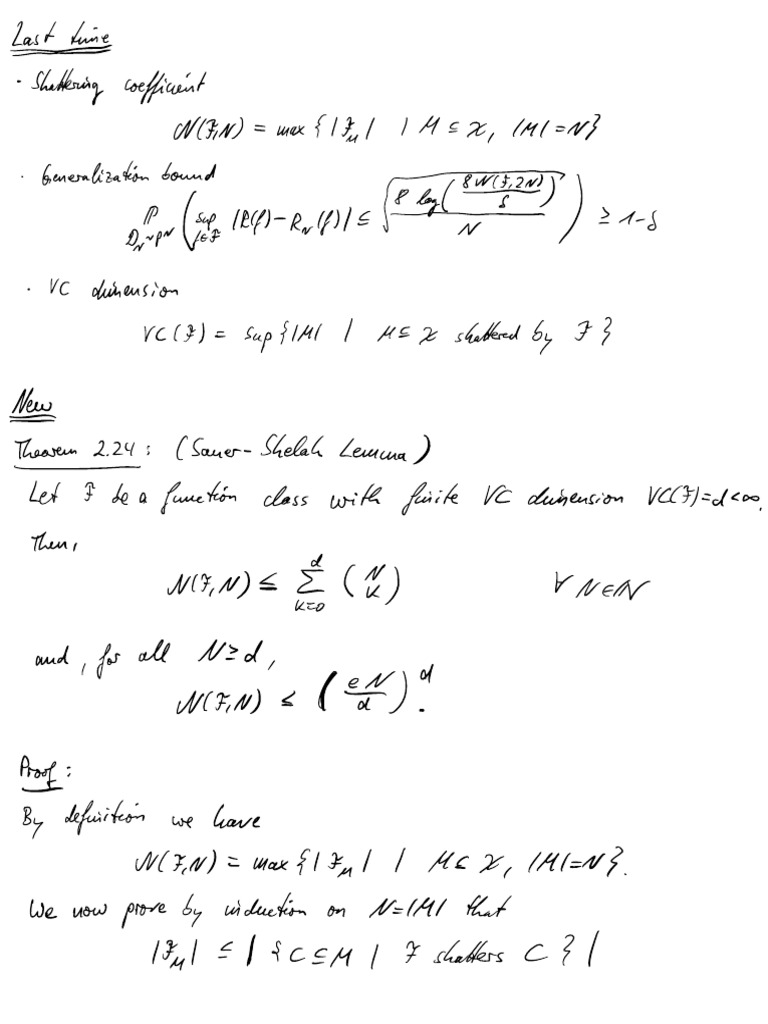 Last time
· Shattering coefficient
𝒩(ℱ,N) = max { |ℱ_M| | M ⊆ 𝒳, |M|=N}
· Generalization bound
ℙ_{D_N∼P^N} ( sup_{f∈ℱ} |R(f)-R_N(f)| ≤ √( 8 log( 8𝒩(ℱ,2N) / δ ) / N ) ) ≥ 1-δ
· VC dimension
VC(ℱ) = sup { |M| | M ⊆ 𝒳 shattered by ℱ }
New
Theorem 2.24 : (Sauer-Shelah Lemma)
Let ℱ be a function class with finite VC dimension VC(ℱ)=d<∞.
Then,
𝒩(ℱ,N) ≤ ∑_{k=0}^{d} (N k) ∀ N∈ℕ
and, for all N≥d,
𝒩(ℱ,N) ≤ (eN/d)^d .
Proof :
By definition we have
𝒩(ℱ,N) = max { |ℱ_M| | M ⊆ 𝒳, |M|=N }.
We now prove by induction on N=|M| that
|ℱ_M| ≤ | { C ⊆ M | ℱ shatters C } |